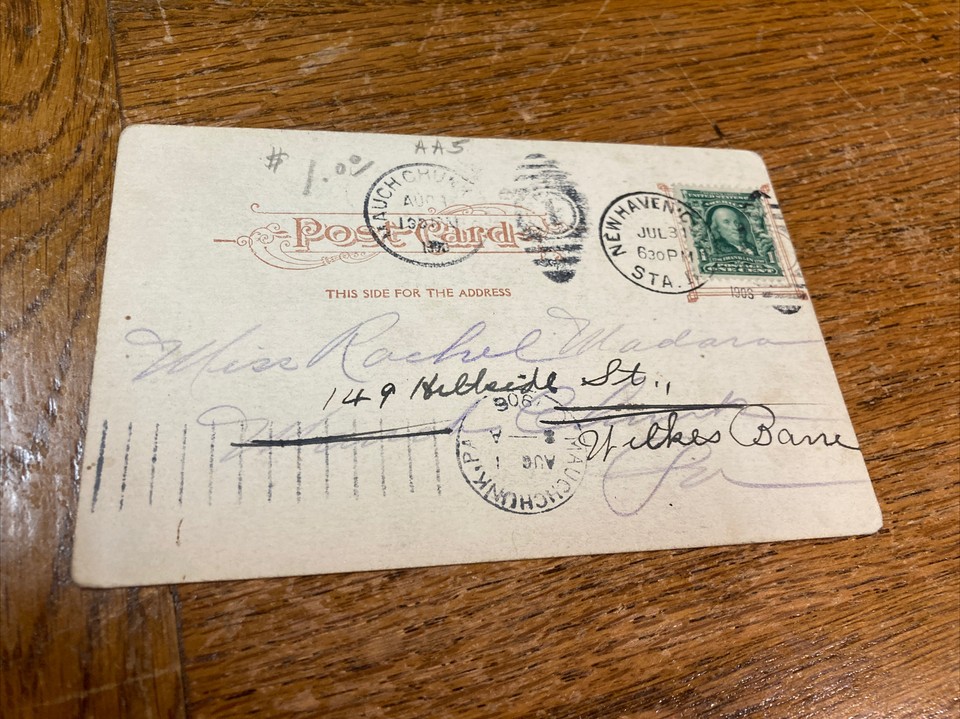 AA5
# 1.00
MAUCH CHUNK
AUG 1
130 PM
1906
1
NEW HAVEN, C
JUL 31
630 PM
STA. 1
1906
ONE CENT
Post Card
THIS SIDE FOR THE ADDRESS
Miss Rachel Madara
149 Hillside St.,
Mauch Chunk
Wilkes Barre
Pa
MAUCH CHUNK, PA.
AUG 1
A
1906